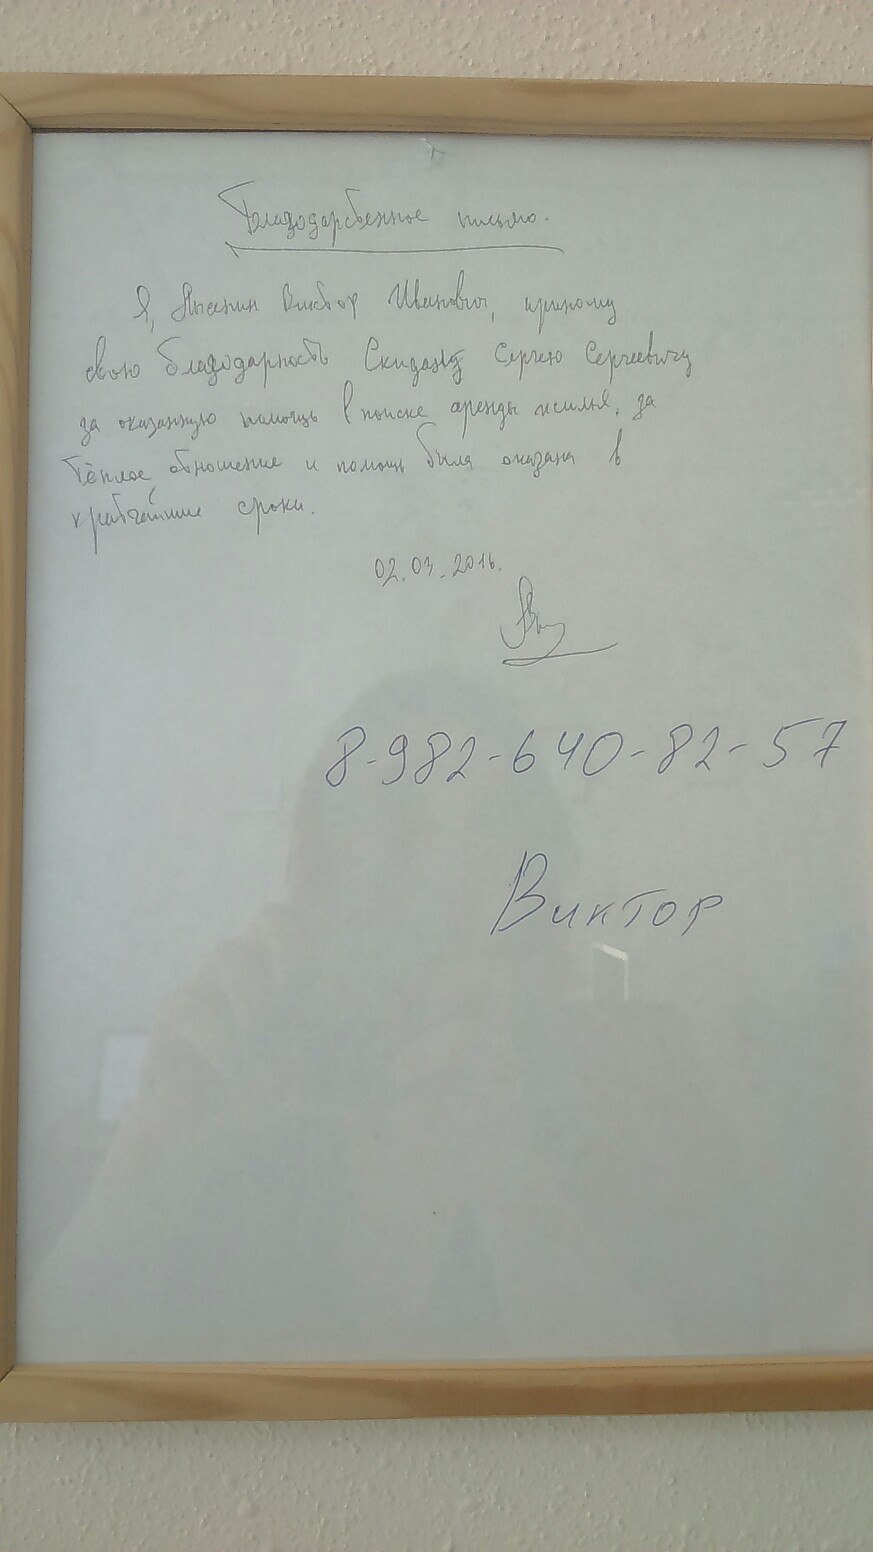 Благодарственное письмо.
Я, Виктор Иванович, приношу
свою благодарность Сергею Сергеевичу
за оказанную помощь в поиске аренды жилья, за
тёплое отношение и помощь была оказана в
кратчайшие сроки.
02.03.2016.
8-982-640-82-57
Виктор